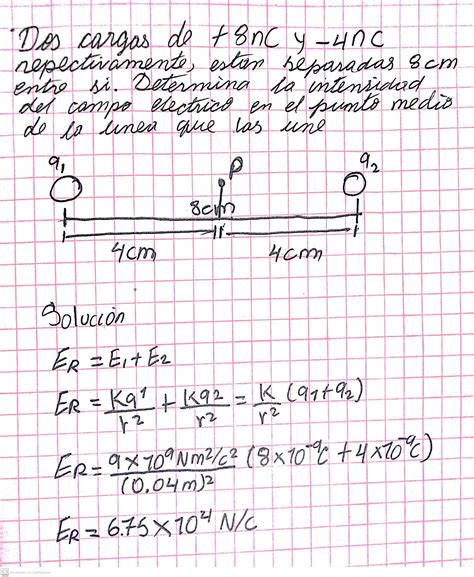 Dos cargas de +8nC y -4nC
repectivamente, estan separadas 8cm
entre si. Determina la intensidad
del campo electrico en el punto medio
de la linea que las une
q1 P q2
8cm
4cm 4cm
Solución
ER = E1 + E2
ER = Kq1/r² + Kq2/r² = K/r² (q1+q2)
ER = 9x10⁹Nm²/c²/(0.04m)² (8x10⁻⁹c + 4x10⁻⁹c)
ER = 6.75x10⁴ N/c